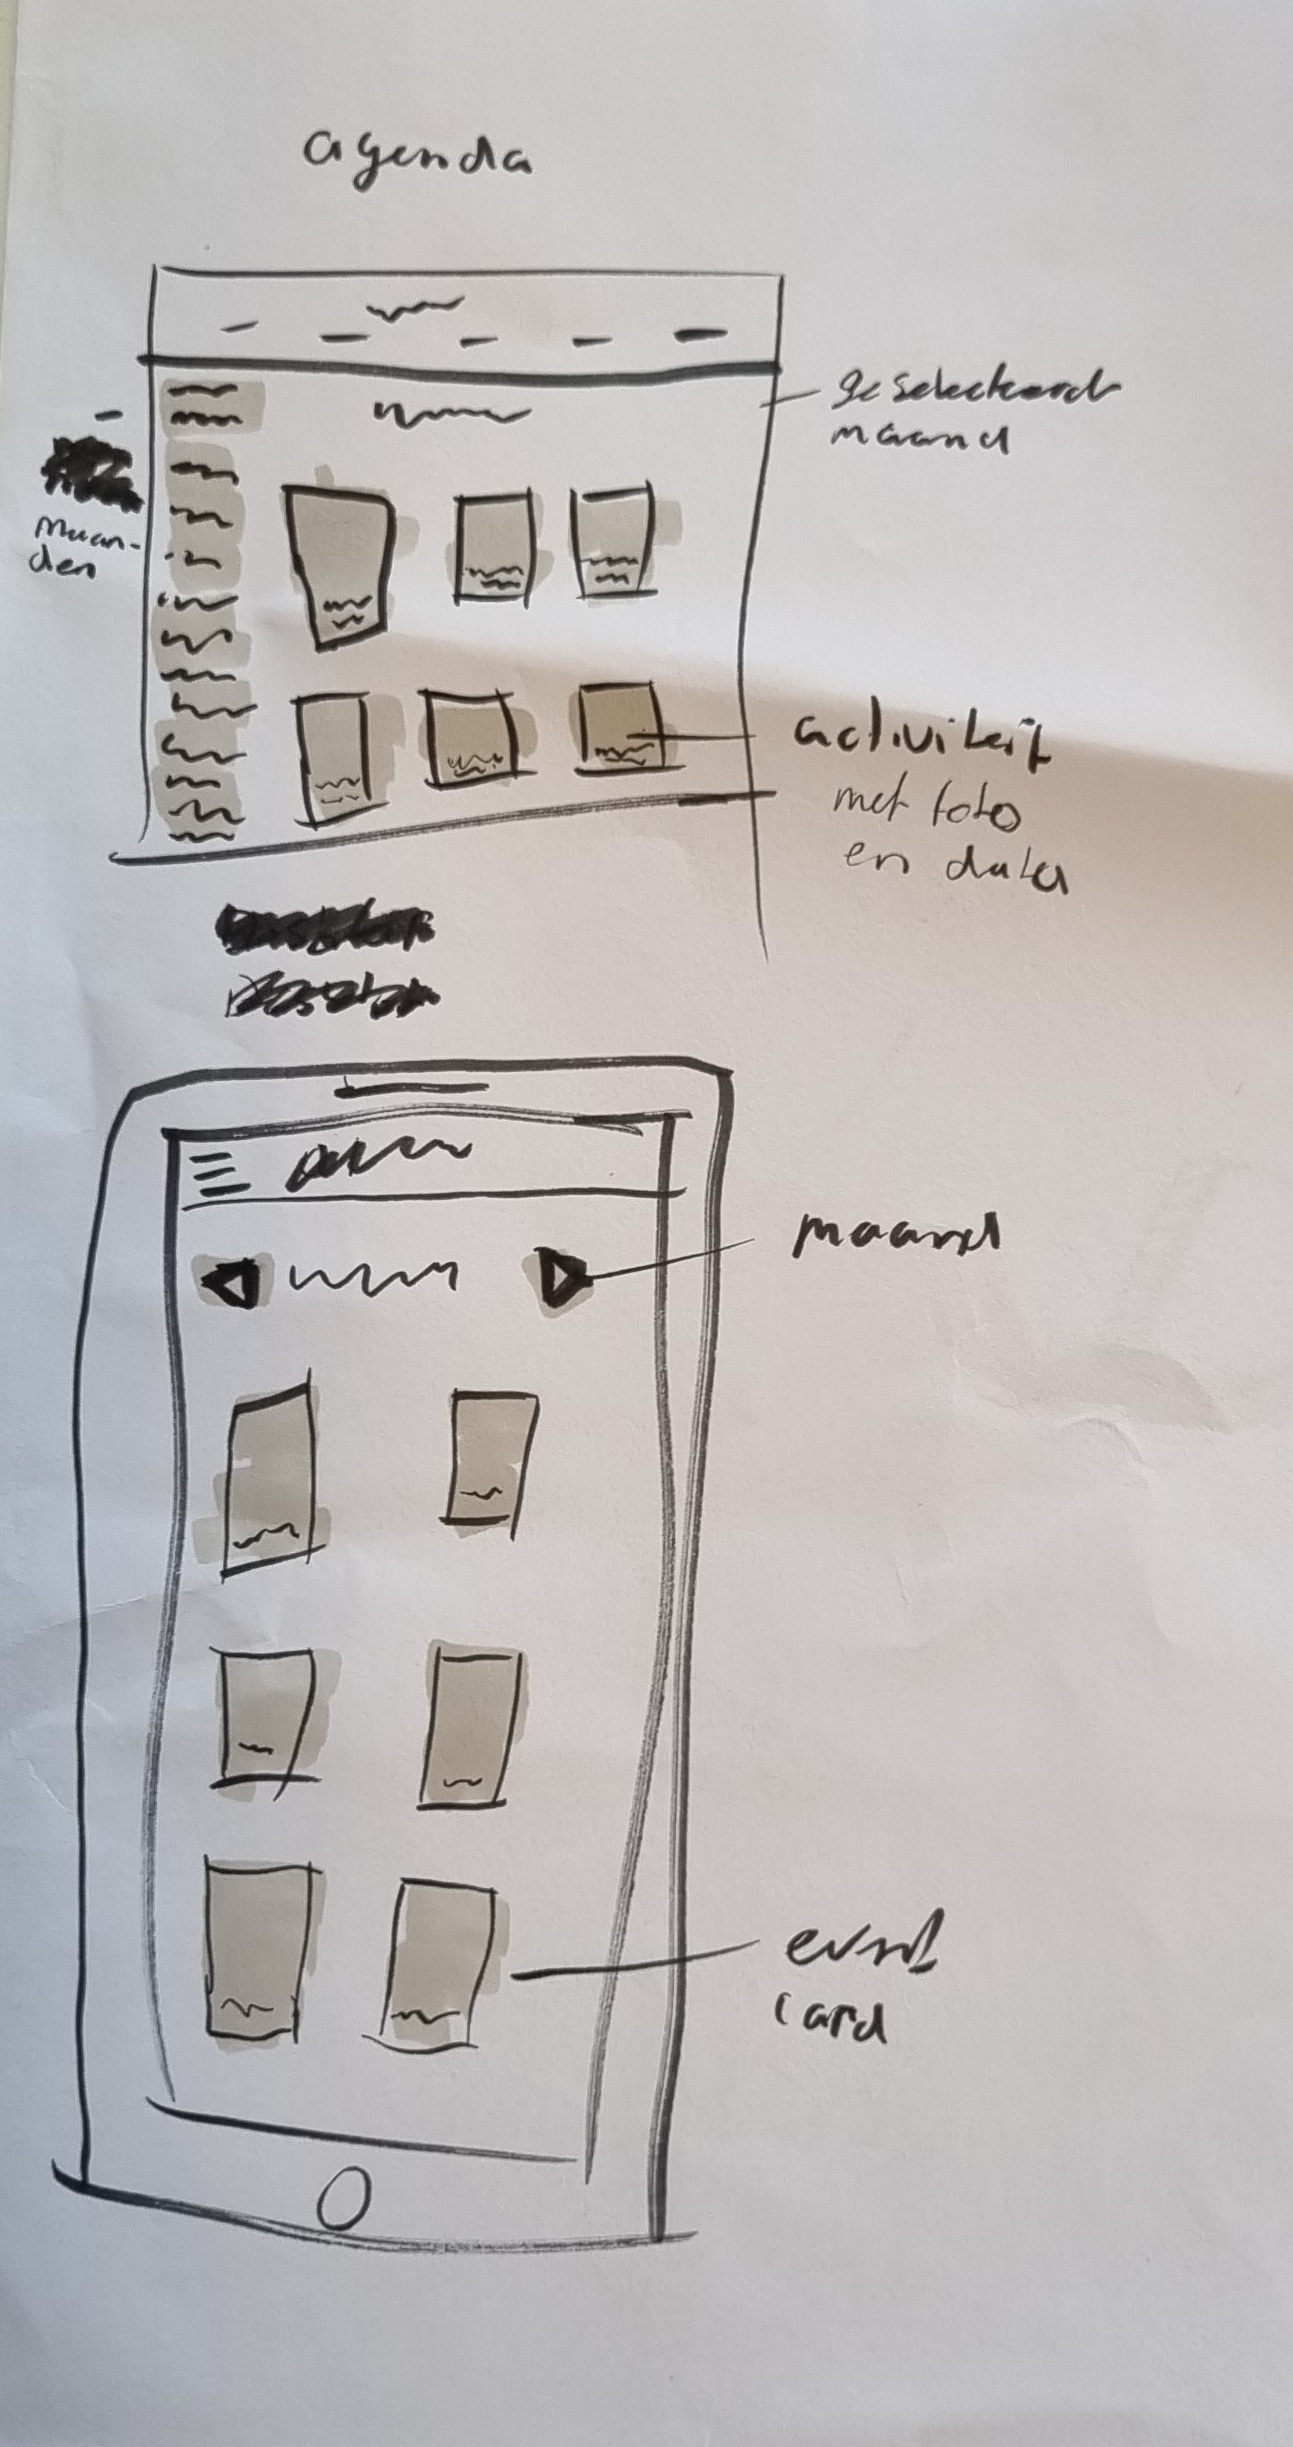 agenda
geselecteerde
maand
maan-
den
activiteit
met foto
en data
maand
event
card